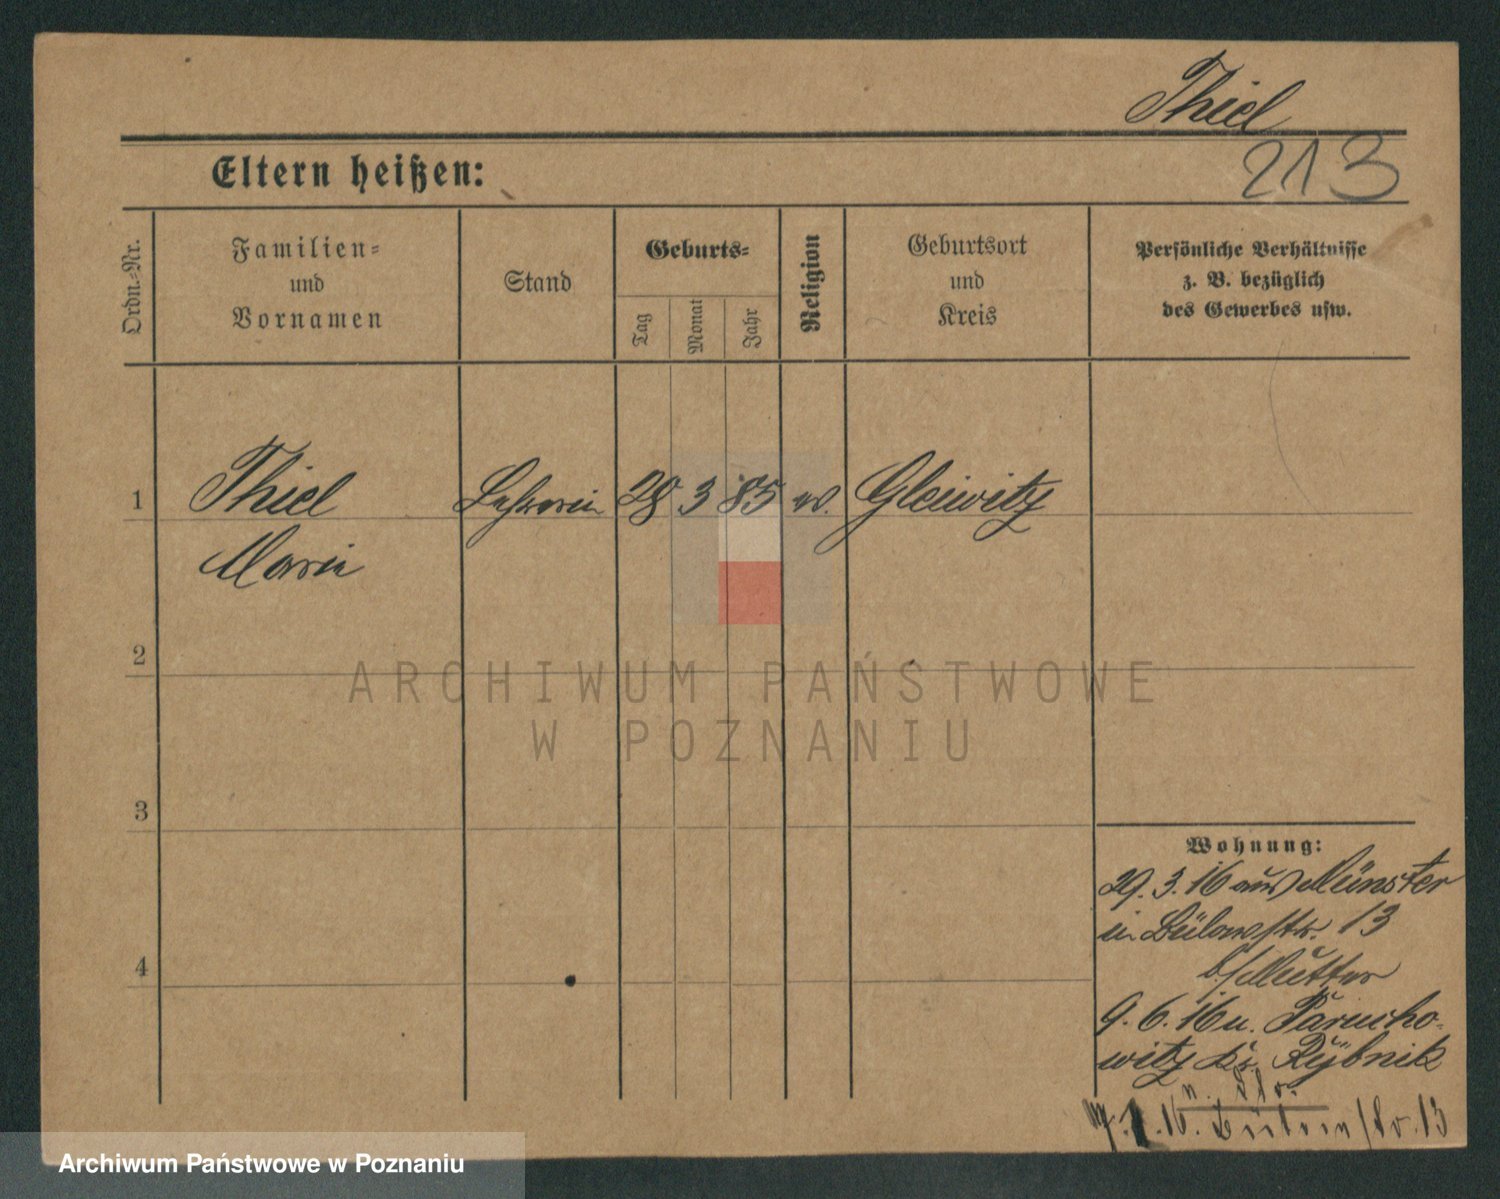 Thiel
213
Eltern heißen:
Ordn.-Nr.
Familien-
und
Vornamen
Stand
Geburts-
Tag
Monat
Jahr
Religion
Geburtsort
und
Kreis
Persönliche Verhältnisse
z. B. bezüglich
des Gewerbes usw.
1
Thiel
Lehrerin
28
3
85
ev.
Gleiwitz
Marie
2
ARCHIWUM PAŃSTWOWE
W POZNANIU
3
4
Wohnung:
29.3.16 aus Münster
in Bülowstr. 13
b/Mutter
9.6.16 n. Paruscho-
witz Kr. Rybnik
13
Archiwum Państwowe w Poznaniu